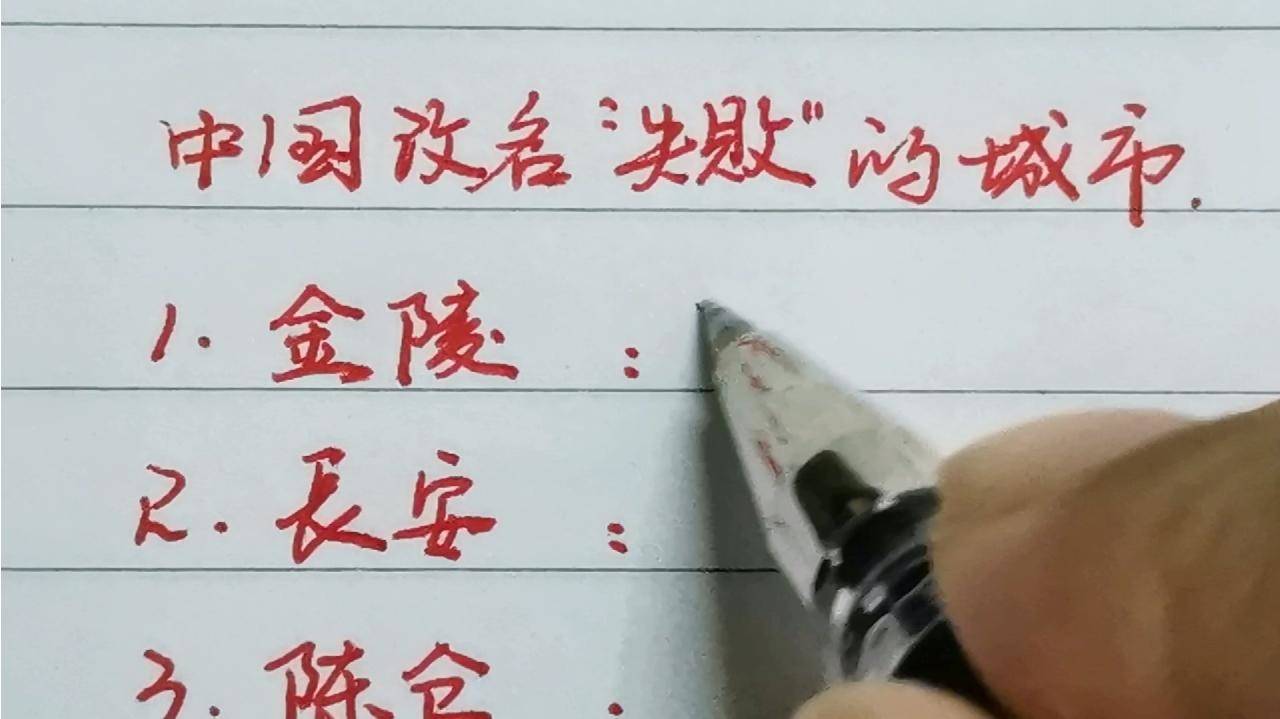 中国改名“失败”的城市.
1. 金陵 :
2. 長安 :
3. 陈仓 :